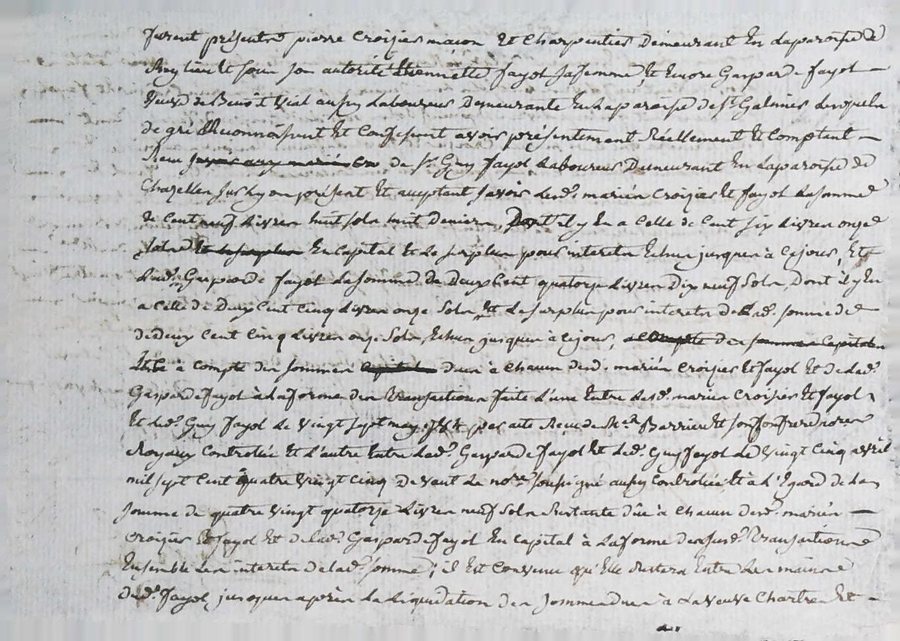 furent présents pierre Croizier macon Et Charpentier Demeurant En Laparoisse de
Et sous son autorité Etiennette fayol sa femme, Et Encore Gaspard e fayol —
veuve de Benoit Vial aussy Laboureur Demeurante En Laparoisse de St Galmier Lesquels
de gré Reconnoissent Et Confessent avoir présentement Réellement Et Comptant —
Receu de Sr Guy fayol Laboureur Demeurant En Laparoisse de
Chazelles sus Lyon présent Et acceptant savoir Lesd. mariés Croizier Et fayol Lasomme
de Cent neuf Livres huit sols huit deniers, Dont il y En a Celle de Cent six Livres onze
sols Et Le surplus En Capital Et Le surplus pour interets Echus jusques à Cejour, Et
Lad. Gasparde fayol Lasomme De Deux Cent quatorze Livres Dix neuf sols, Dont il y En
a Celle de Deux Cent Cinq Livres onze sols, Et Le surplus pour interets de Lad. somme de
de deux Cent Cinq Livres onze sols, Echus jusques à Cejour, a Compte des sommes Capitales
à Compte des sommes Capitales dues à Chacun desd. mariés Croizier Et fayol Et de Lad.
Gasparde fayol à La forme des Transactions faites L'une Entre Lesd. mariés Croizier Et fayol
Et Led. Guy fayol Le Vingt sept may par acte Receu de Me Barrieu Et son Confrere notaires
Royaux Controllée Et L'autre Entre Lad. Gasparde fayol Et Led. Guy fayol Le Vingt Cinq avril
mil sept Cent quatre Vingt Cinq De Vant Le nore soussigné aussy Controllée Et à L'Egard de La
somme de quatre Vingt quatorze Livres neuf sols Restante düe à Chacun desd. mariés —
Croizier Et fayol Et de Lad. Gasparde fayol En Capital à La forme desusd. Transactions
Ensemble Les interets de Lad. somme, il Est Convenu qu'Elle Restera Entre Les mains
Dud. fayol, jusques après La Liquidation des sommes dues à La veuve Chartre Et —